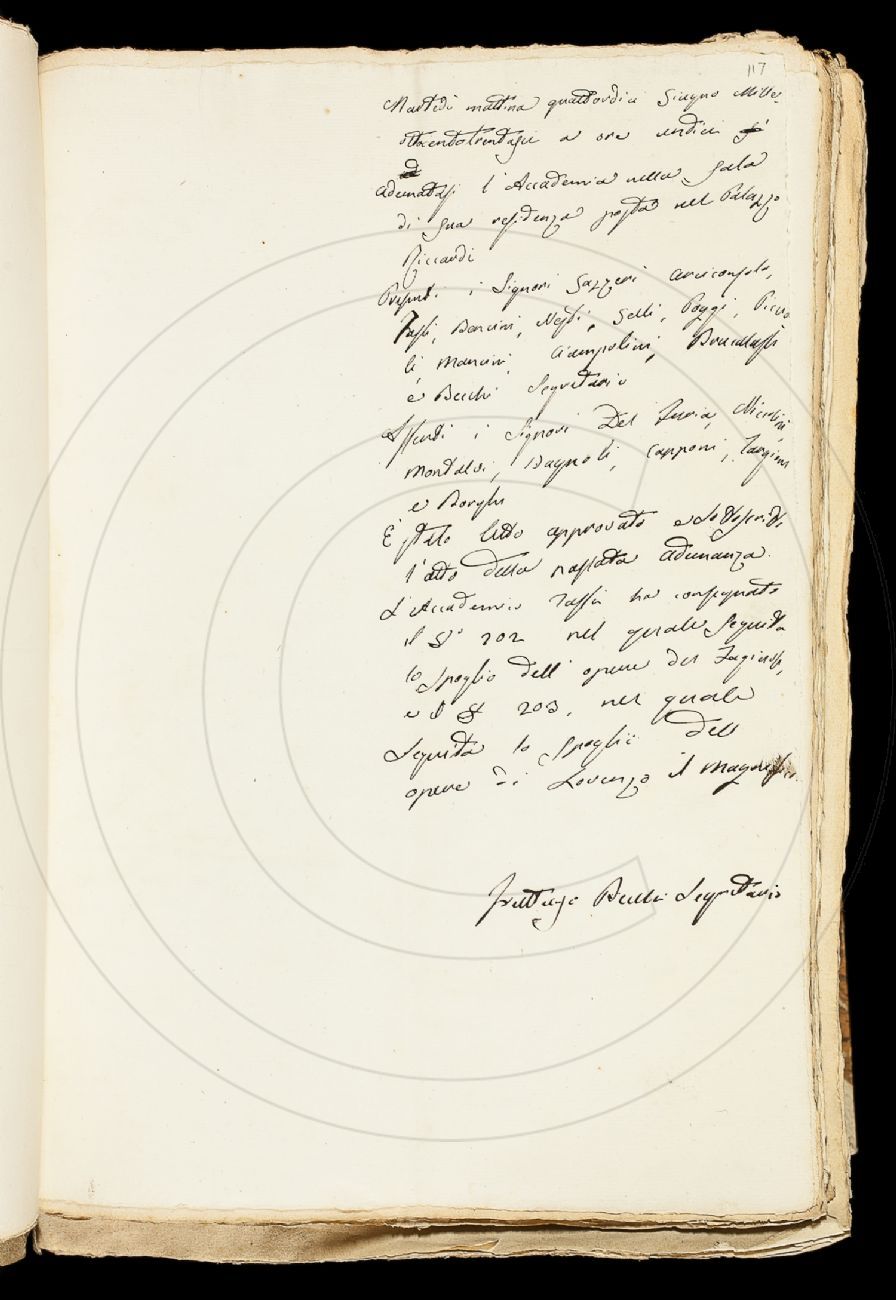 117
Martedì mattina quattordici Giugno Mille-
ottocentotrentasei a ore undici si
è
adunatasi l'Accademia nella sala
di sua residenza posta nel Palazzo
Riccardi
Presenti i Signori Gazzeri arciconsolo,
Tassi, Bencini, Nesti, Gelli, Poggi,
li, Mancini, Ciampolini, Brucalassi
e Becchi Segretario
Assenti i Signori Del Furia, Niccolini,
Montalvi, Bagnoli, Capponi, Targioni
e Borghi
È stato letto approvato e sottoscritto
l'atto della passata adunanza.
L'Accademico Tassi ha consegnato
il 202 nel quale seguita
lo spoglio dell' opere del Fagiuoli,
e il 203, nel quale
seguita lo spoglio dell
opere di Lorenzo il magnifico.
Fruttuoso Becchi Segretario